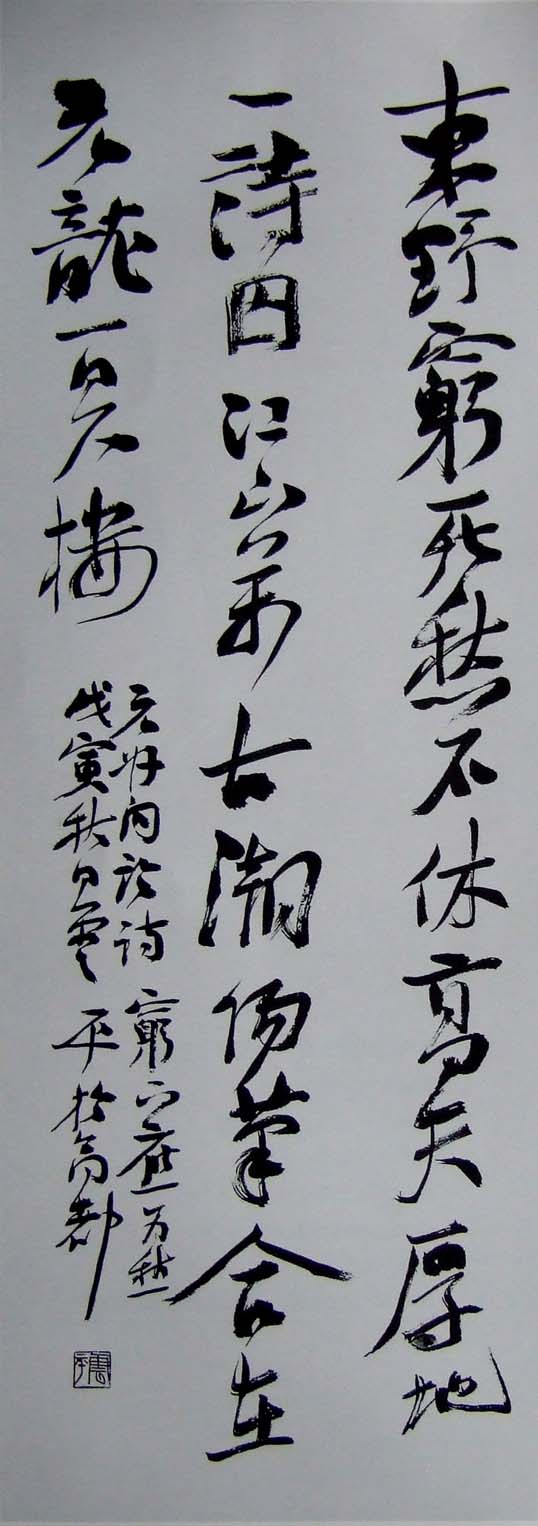 東野窮死愁不休高天厚地
一詩囚江山万古潮陽筆合在
元龍百尺樓
元好问論詩 窮下應为愁
戊寅秋日雲平於高都